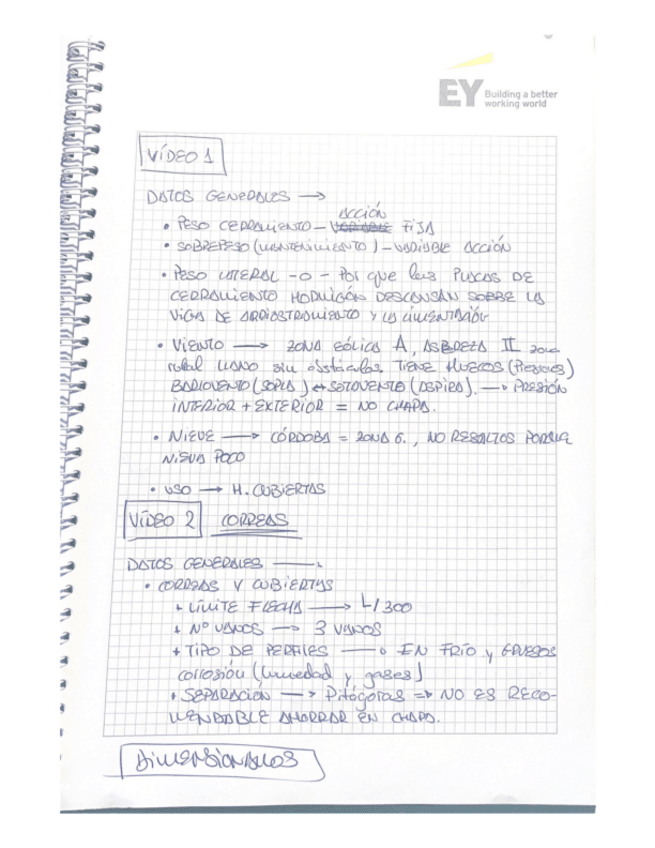 EY Building a better
working world
VÍDEO 1
DATOS GENERALES →
ACCIÓN
• PESO CERRAMIENTO – VARIABLE FIJA
• SOBREPESO (MANTENIMIENTO) – VARIABLE ACCIÓN
• PESO LATERAL – 0 – Por que las PLACAS DE
CERRAMIENTO HORMIGÓN DESCANSAN SOBRE LA
VIGA DE ARRIOSTRAMIENTO Y LA CIMENTACIÓN
• VIENTO → ZONA EÓLICA A, ASPEREZA II zona
rural llano sin obstáculos. TIENE HUECOS (Presiones)
BARLOVENTO (SOPLA) ↔ SOTOVENTO (ASPIRA). → PRESIÓN
INTERIOR + EXTERIOR = NO CHAPA.
• NIEVE → CÓRDOBA = ZONA 6., NO RESALTOS PORQUE
NIEVA POCO
• USO → H. CUBIERTAS
VÍDEO 2 CORREAS
DATOS GENERALES →
• CORREAS Y CUBIERTAS
+ LÍMITE FLECHA → L/300
+ Nº VANOS → 3 VANOS
+ TIPO DE PERFILES → EN FRÍO y GRUESOS
corrosión (humedad y gases)
+ SEPARACIÓN → Pitágoras => NO ES RECO-
MENDABLE AHORRAR EN CHAPA.
DIMENSIONAMOS